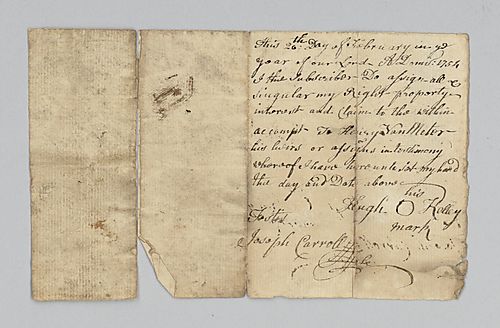 This 26th Day of February in ye
year of our Lord A:Domi: 1754
I the Subscriber Do assign all &
Singular my Right property
interest and Claim to the within
accompt To Henry VanMeter
his heirs or assigns in testimony
whereof I have hereunto Set my hand
the day and Date above
his
Hugh O Kelley
mark
Testis
Joseph Carroll